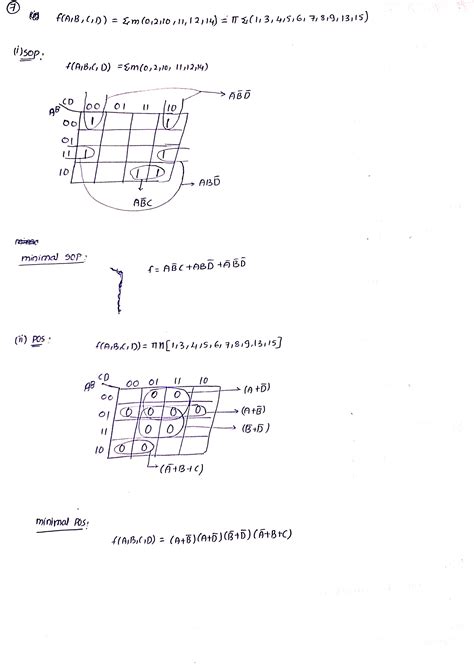 7
f(A,B,C,D) = Σm(0,2,10,11,12,14) = π Σ(1,3,4,5,6,7,8,9,13,15)
(i) SOP:
f(A,B,C,D) = Σm(0,2,10,11,12,14)
AB CD 00 01 11 10
A̅B̅D̅
00 1 1
01
11 1 1
10 1 1
ABD̅
AB̅C
minimal SOP:
f = AB̅C + ABD̅ + A̅B̅D̅
(ii) POS:
f(A,B,C,D) = πM[1,3,4,5,6,7,8,9,13,15]
AB CD 00 01 11 10
00 0 0
(A+D̅)
01 0 0 0 0
(A+B̅)
11 0 0
(B̅+D̅)
10 0 0
(A̅+B+C)
minimal POS:
f(A,B,C,D) = (A+B̅)(A+D̅)(B̅+D̅)(A̅+B+C)